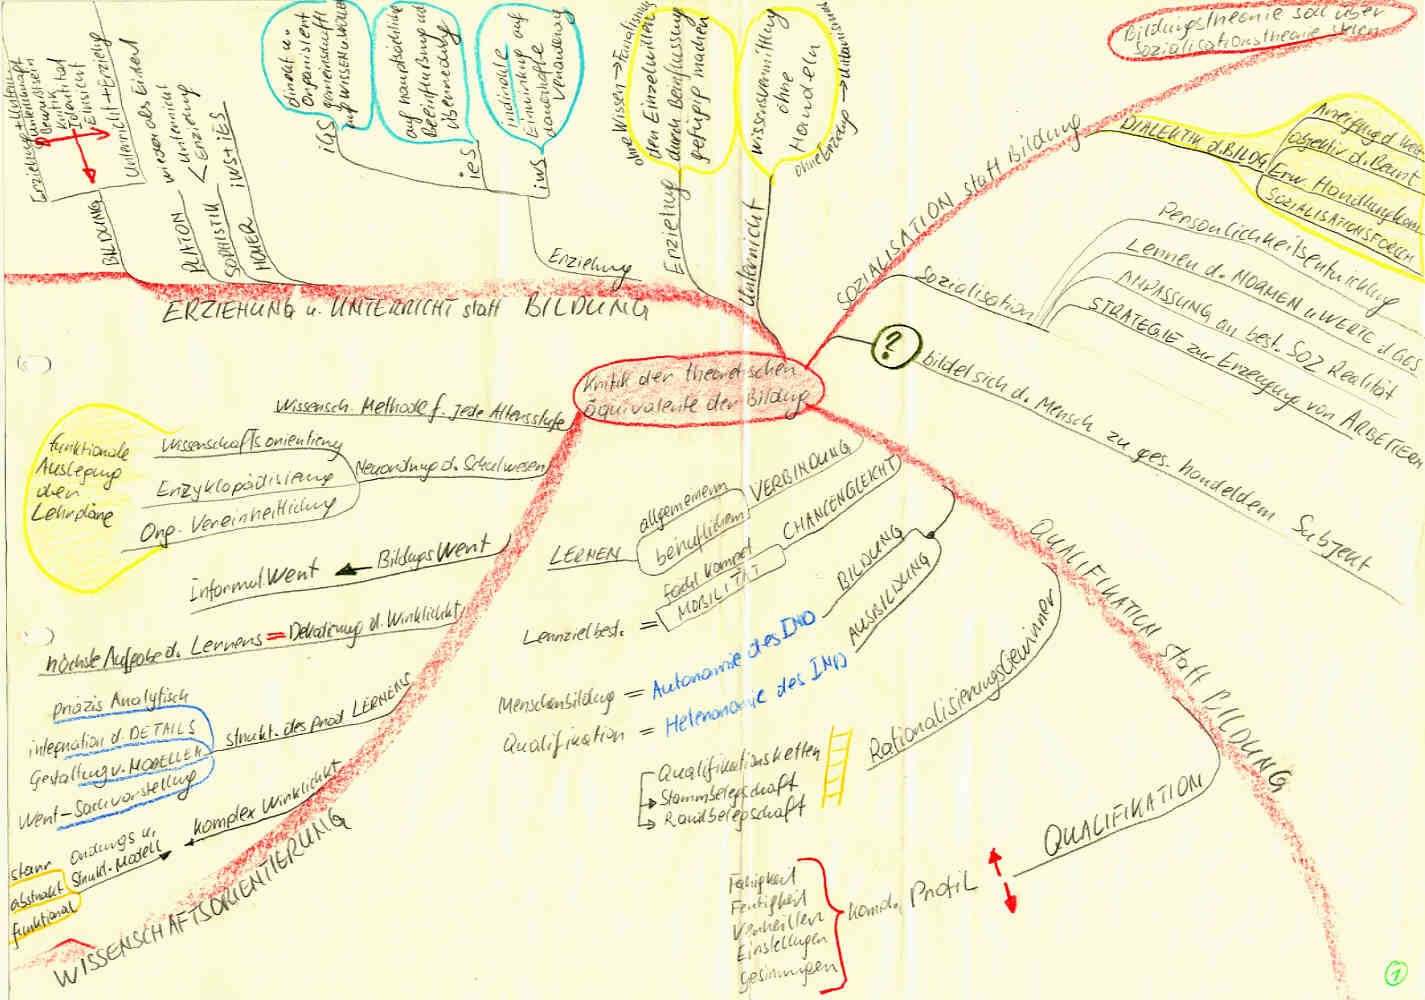 Kritik der theoretischen
Äquivalente der Bildung
Bildungstheorie soll über
Sozialisationstheorie
SOZIALISATION statt Bildung
DIALEKTIK d. BILDG
Aneignung d. Welt
objektiv d. Bestimt
Erw. Handlungskom
SOZIALISATIONSFORSCH
Sozialisation
Persönlichkeitsentwicklung
Lernen d. NORMEN u WERTE d GES
ANPASSUNG an best. SOZ Realität
STRATEGIE zur Erzeugung von ARBEITERN
?
bildet sich d. Mensch zu ges. handeldem Subjekt
QUALIFIKATION statt BILDUNG
VERBINDUNG
allgemeinem
beruflichem
LERNEN
CHANCENGLEICHT
fachl Kompet
MOBILITÄT
Lernzielbest. =
BILDUNG
AUSBILDUNG
Menschenbildung = Autonomie des IND
Qualifikation = Heteronomie des IND
RationalisierungsGewinner
Qualifikationsketten
Stammbelegschaft
Randbelegschaft
QUALIFIKATION
Profil
Fähigkeit
Fertigkeit
Verhalten
Einstellungen
Gesinnungen
WISSENSCHAFTSORIENTIERUNG
Wissensch. Methode f. jede Altersstufe
Neuordnung d. Schulwesen
Wissenschaftsorientierung
Enzyklopädisierung
Org. Vereinheitlichung
funktionale
Auslegung
der
Lehrpläne
BildungsWert
InformalWert
höchste Aufgabe d. Lernens = Dekodierung d. Wirklichkt
strukt. des prod LERNENS
präzis Analytisch
integration d. DETAILS
Gestaltung v. MODELLEN
Wert-Sachvorstellung
komplex Wirklichkt
Ordnungs u.
Strukt. Modell
starr
abstrakt
funktional
ERZIEHUNG u. UNTERRICHT statt BILDUNG
BILDUNG
Erziehung + Unterricht
Bewußtsein
Kritik
Identität
Einsicht
Unterricht + Erziehung
Unterricht als Einheit
PLATION
wieder als
< Unterricht
Erziehung
SOPHISTIK
HOMER
iWS + iES
Erziehung
iGS
direkt u.
organisiert
gemeinschaftl
auf WISSEN u WOLLEN
iES
auf hauptsächliche
Beeinflußung
iWS
indirekte
Einwirkung auf
dauerhafte
Veränderung
Erziehung
ohne Wissen → Formalismus
den Einzelwillen
durch Beinflussung
gefügig machen
Unterricht
Wissensvermittlung
ohne
Handeln
ohne Erziehung → Utilitarismus
1